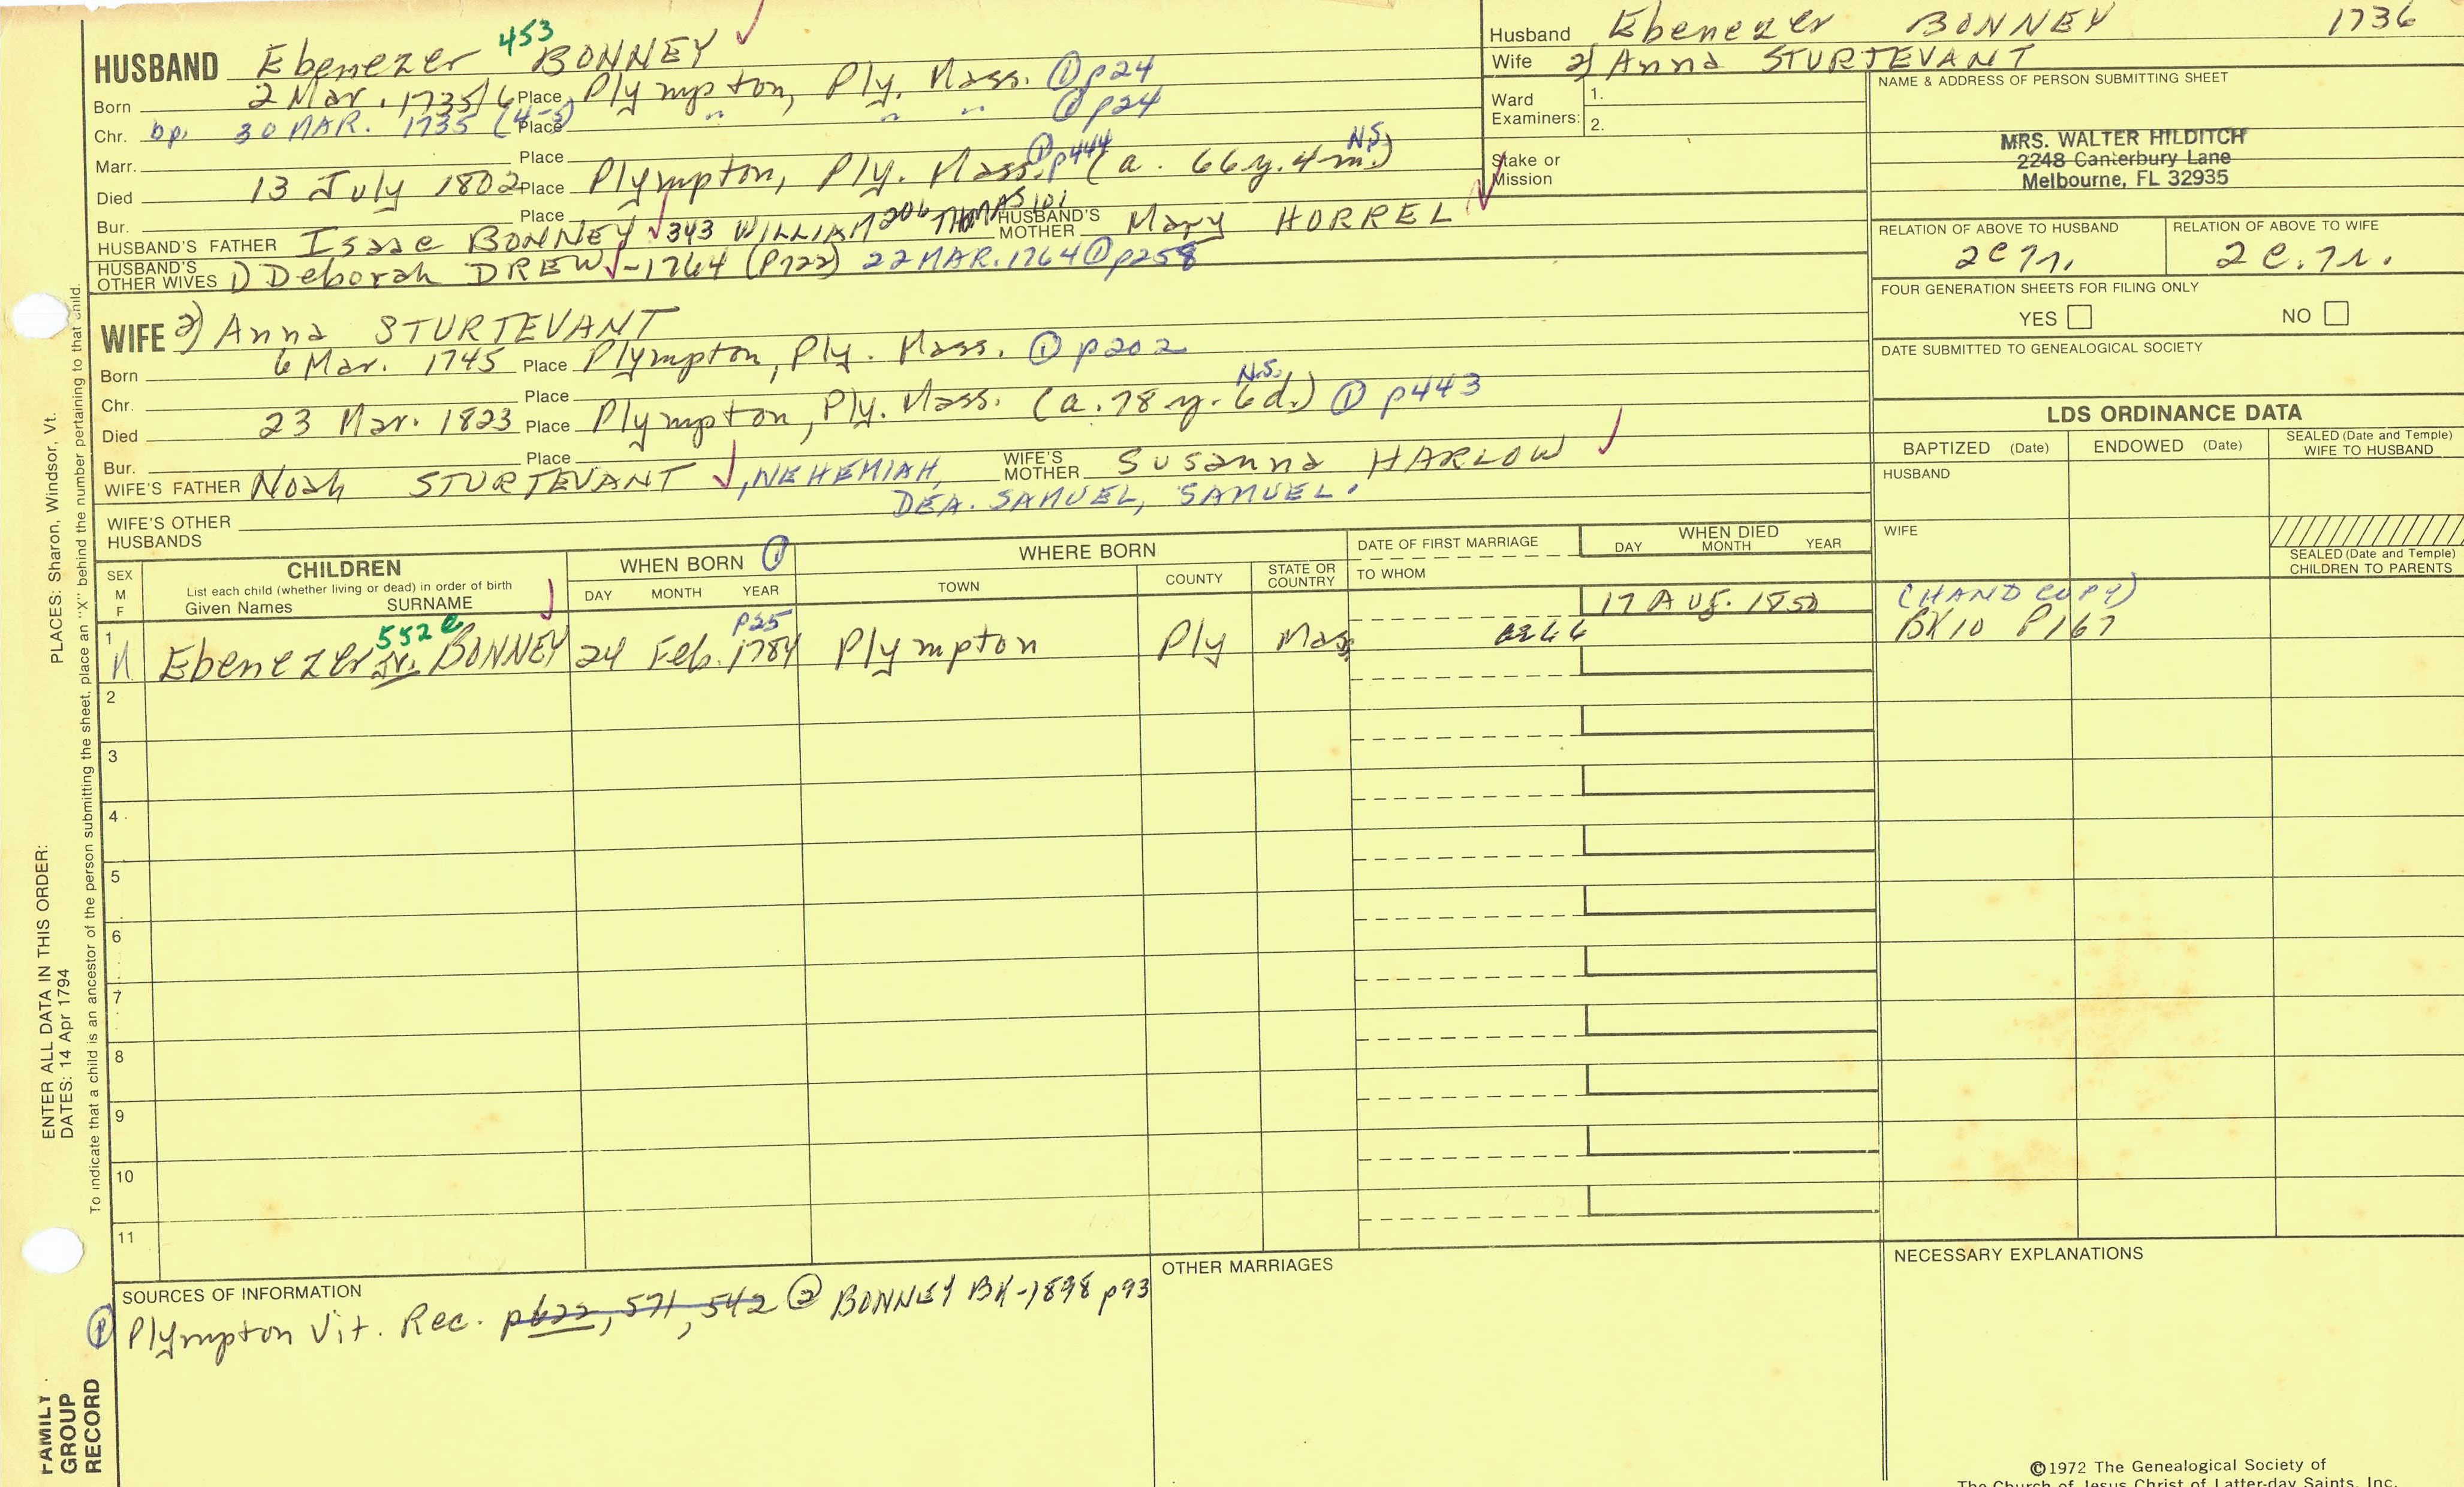 453
HUSBAND Ebenezer BONNEY
Born 2 Mar. 1735/6 Place Plympton, Ply. Mass. ① p24
Chr. bp. 30 MAR. 1735 (4-5) Place " " " ① p24
Marr. Place
Died 13 July 1802 Place Plympton, Ply. Mass. ① p444 (a. 66 y. 4 m.) N.S.
Bur. Place
HUSBAND'S FATHER Isaac BONNEY 343 WILLIAM 206 THOMAS 101 HUSBAND'S MOTHER Mary HORREL
HUSBAND'S OTHER WIVES 1) Deborah DREW -1764 (P722) 22 MAR. 1764 ① p258
WIFE 2) Anna STURTEVANT
Born 6 Mar. 1745 Place Plympton, Ply. Mass. ① p202
Chr. Place
Died 23 Mar. 1823 Place Plympton, Ply. Mass. (a. 78 y. 6 d.) N.S. ① p443
Bur. Place
WIFE'S FATHER Noah STURTEVANT, NEHEMIAH, WIFE'S MOTHER Susanna HARLOW
DEA. SAMUEL, SAMUEL.
WIFE'S OTHER HUSBANDS
Husband Ebenezer BONNEY 1736
Wife 2) Anna STURTEVANT
Ward Examiners: 1.
2.
Stake or Mission
NAME & ADDRESS OF PERSON SUBMITTING SHEET
MRS. WALTER HILDITCH
2248 Canterbury Lane
Melbourne, FL 32935
RELATION OF ABOVE TO HUSBAND RELATION OF ABOVE TO WIFE
FOUR GENERATION SHEETS FOR FILING ONLY
YES NO
DATE SUBMITTED TO GENEALOGICAL SOCIETY
LDS ORDINANCE DATA
BAPTIZED (Date) ENDOWED (Date) SEALED (Date and Temple) WIFE TO HUSBAND
HUSBAND
WIFE
SEALED (Date and Temple) CHILDREN TO PARENTS
(HAND COPY)
BK 10 P167
SEX M F
CHILDREN
List each child (whether living or dead) in order of birth
Given Names SURNAME
WHEN BORN ①
DAY MONTH YEAR
WHERE BORN
TOWN COUNTY STATE OR COUNTRY
DATE OF FIRST MARRIAGE
TO WHOM
WHEN DIED
DAY MONTH YEAR
1 M Ebenezer Jr. 552 BONNEY 24 Feb. 1784 p25 Plympton Ply Mass 17 AUG. 1850
2
3
4
5
6
7
8
9
10
11
SOURCES OF INFORMATION
① Plympton Vit. Rec. p622, 571, 542 ② BONNEY BK-1898 p93
OTHER MARRIAGES
NECESSARY EXPLANATIONS
©1972 The Genealogical Society of
The Church of Jesus Christ of Latter-day Saints, Inc.
PLACES: Sharon, Windsor, Vt.
ENTER ALL DATA IN THIS ORDER:
DATES: 14 Apr 1794
To indicate that a child is an ancestor of the person submitting the sheet, place an "X" behind the number pertaining to that child.
FAMILY GROUP RECORD